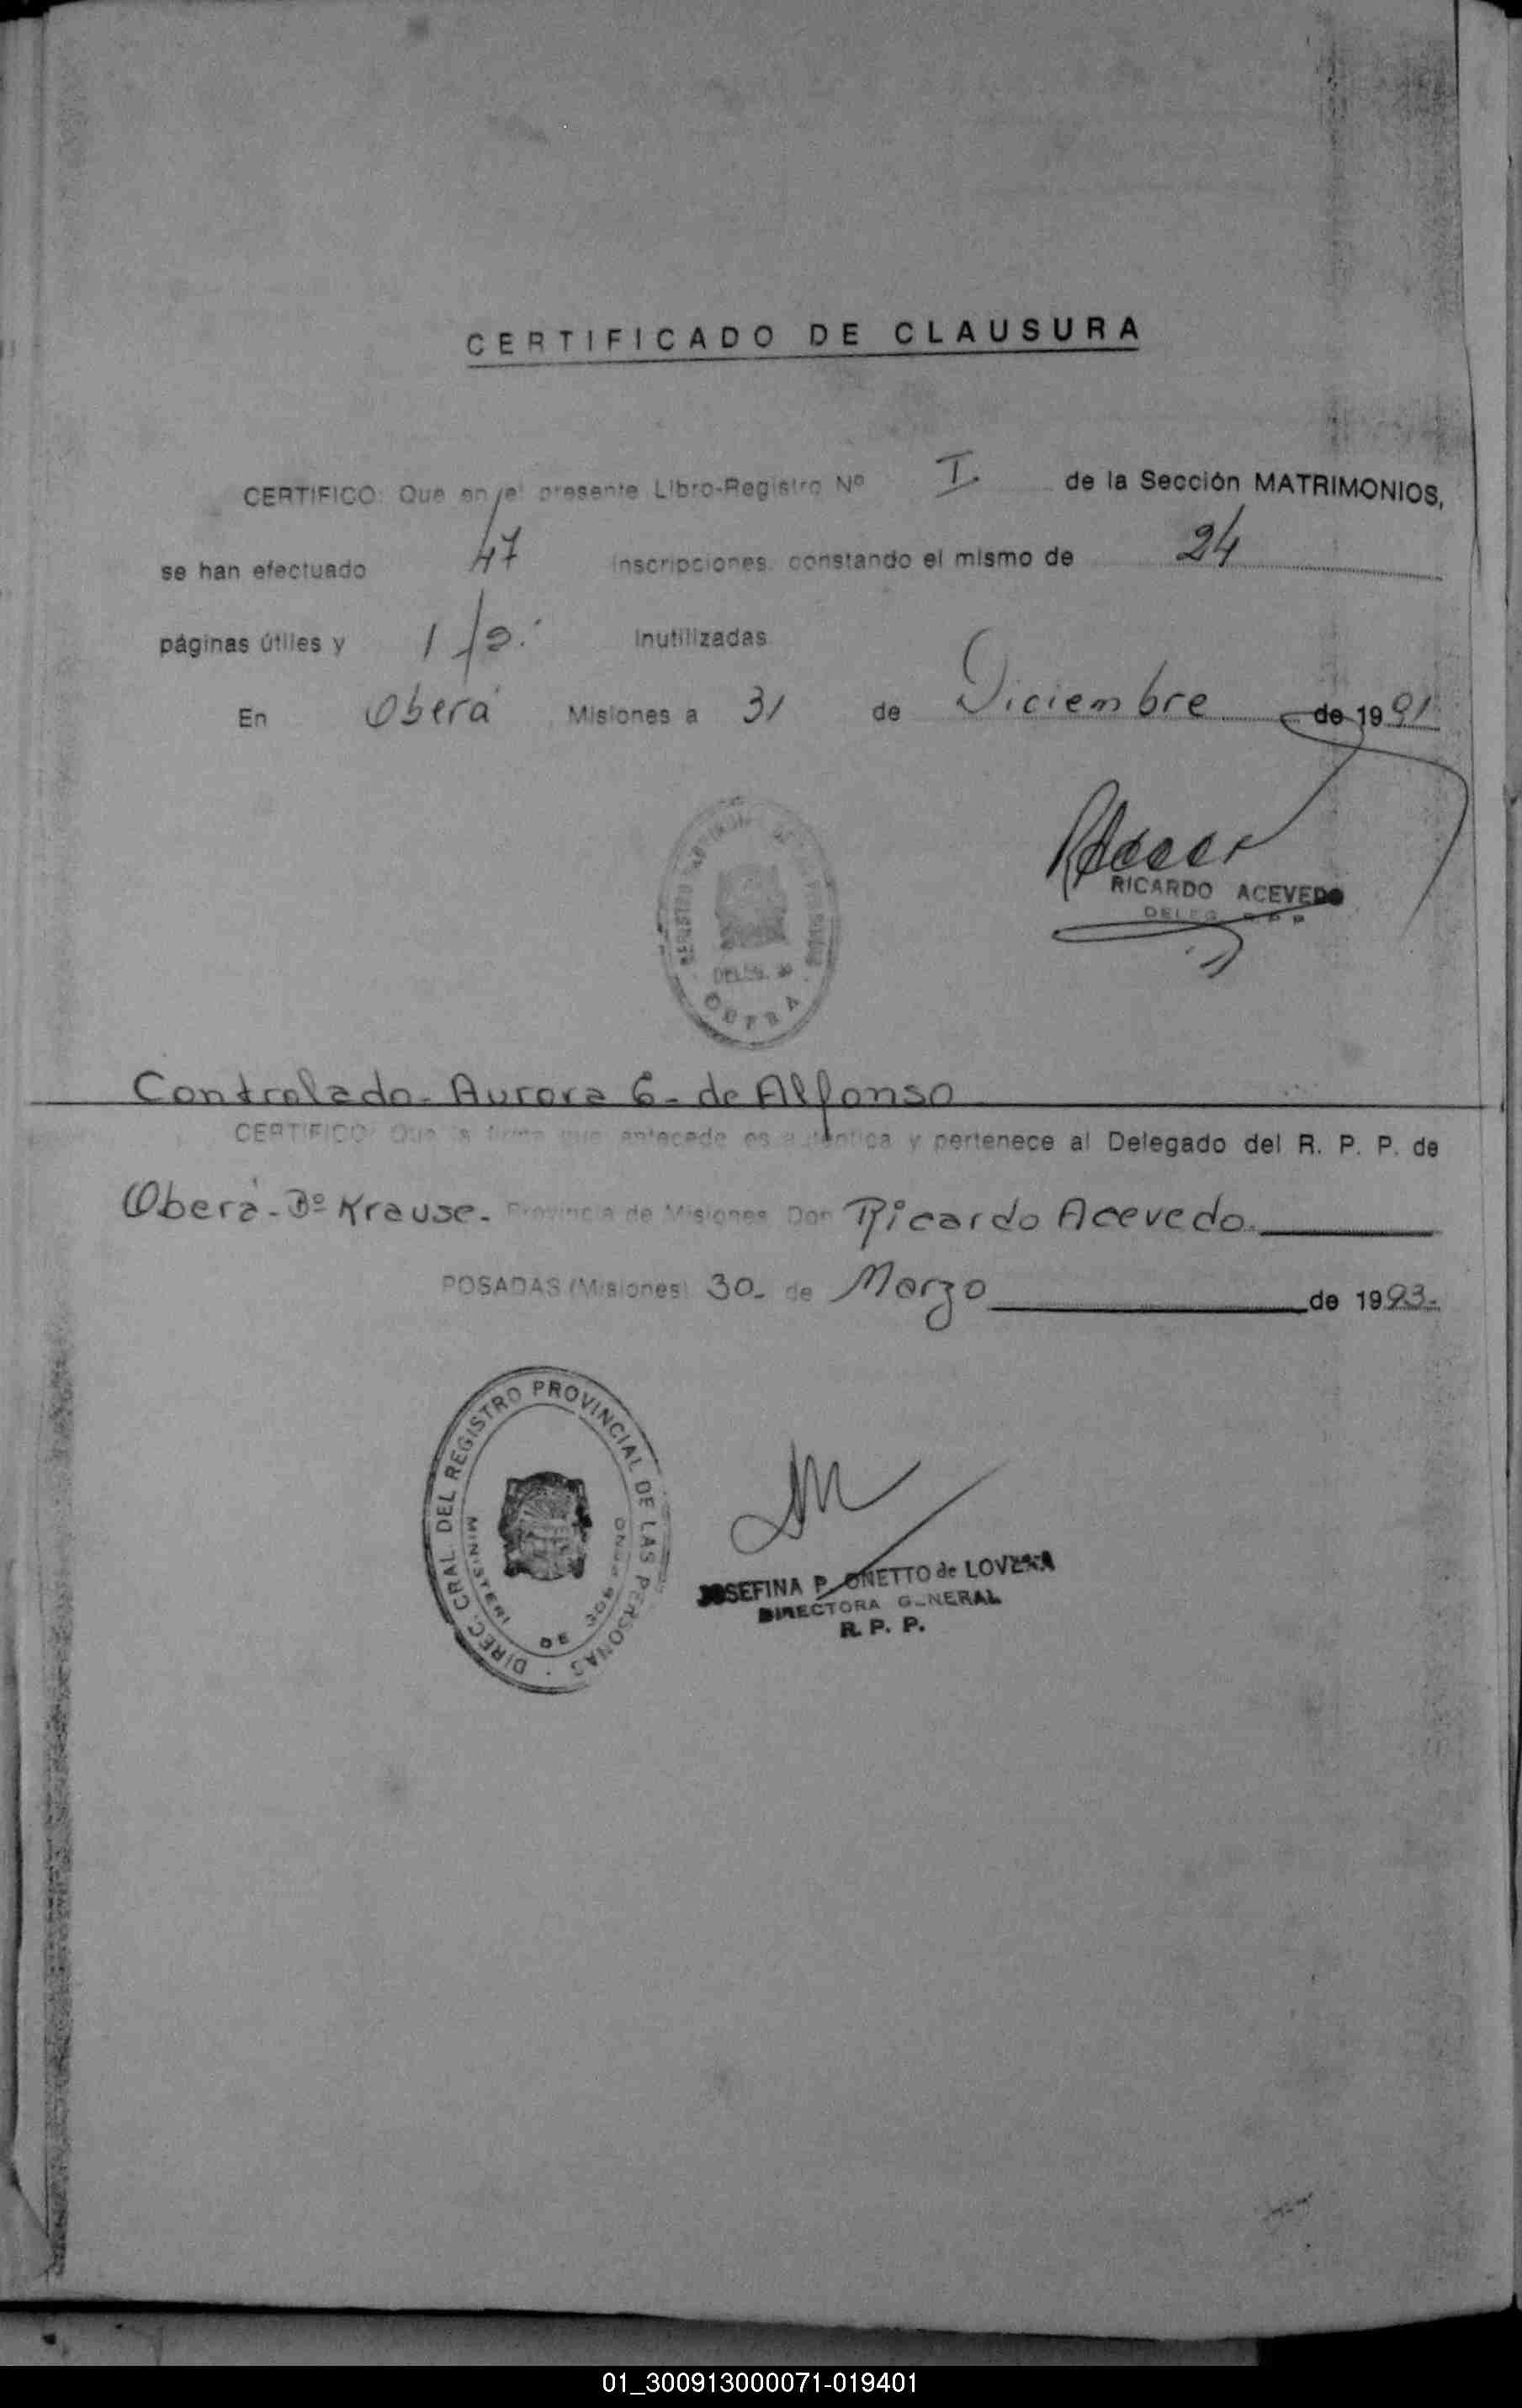 CERTIFICADO DE CLAUSURA
CERTIFICO: Que en el presente Libro-Registro Nº I. de la Sección MATRIMONIOS,
se han efectuado 47 inscripciones, constando el mismo de 24
páginas útiles y 1/2.- Inutilizadas
En Oberá Misiones a 31 de Diciembre de 1991
RICARDO ACEVEDO
DELEG. R P P
DELEG.
OBERA
Controlado - Aurora G - de Alfonso
CERTIFICO: Que la firma que antecede es auténtica y pertenece al Delegado del R. P. P. de
Oberá - Bº Krause - Provincia de Misiones Don Ricardo Acevedo.
POSADAS (Misiones) 30 - de Marzo de 1993.
DIREC. GRAL. DEL REGISTRO PROVINCIAL DE LAS PERSONAS
MINISTERI DE GOB
JOSEFINA P. ONETTO de LOVERA
DIRECTORA GENERAL
R. P. P.
01_300913000071-019401